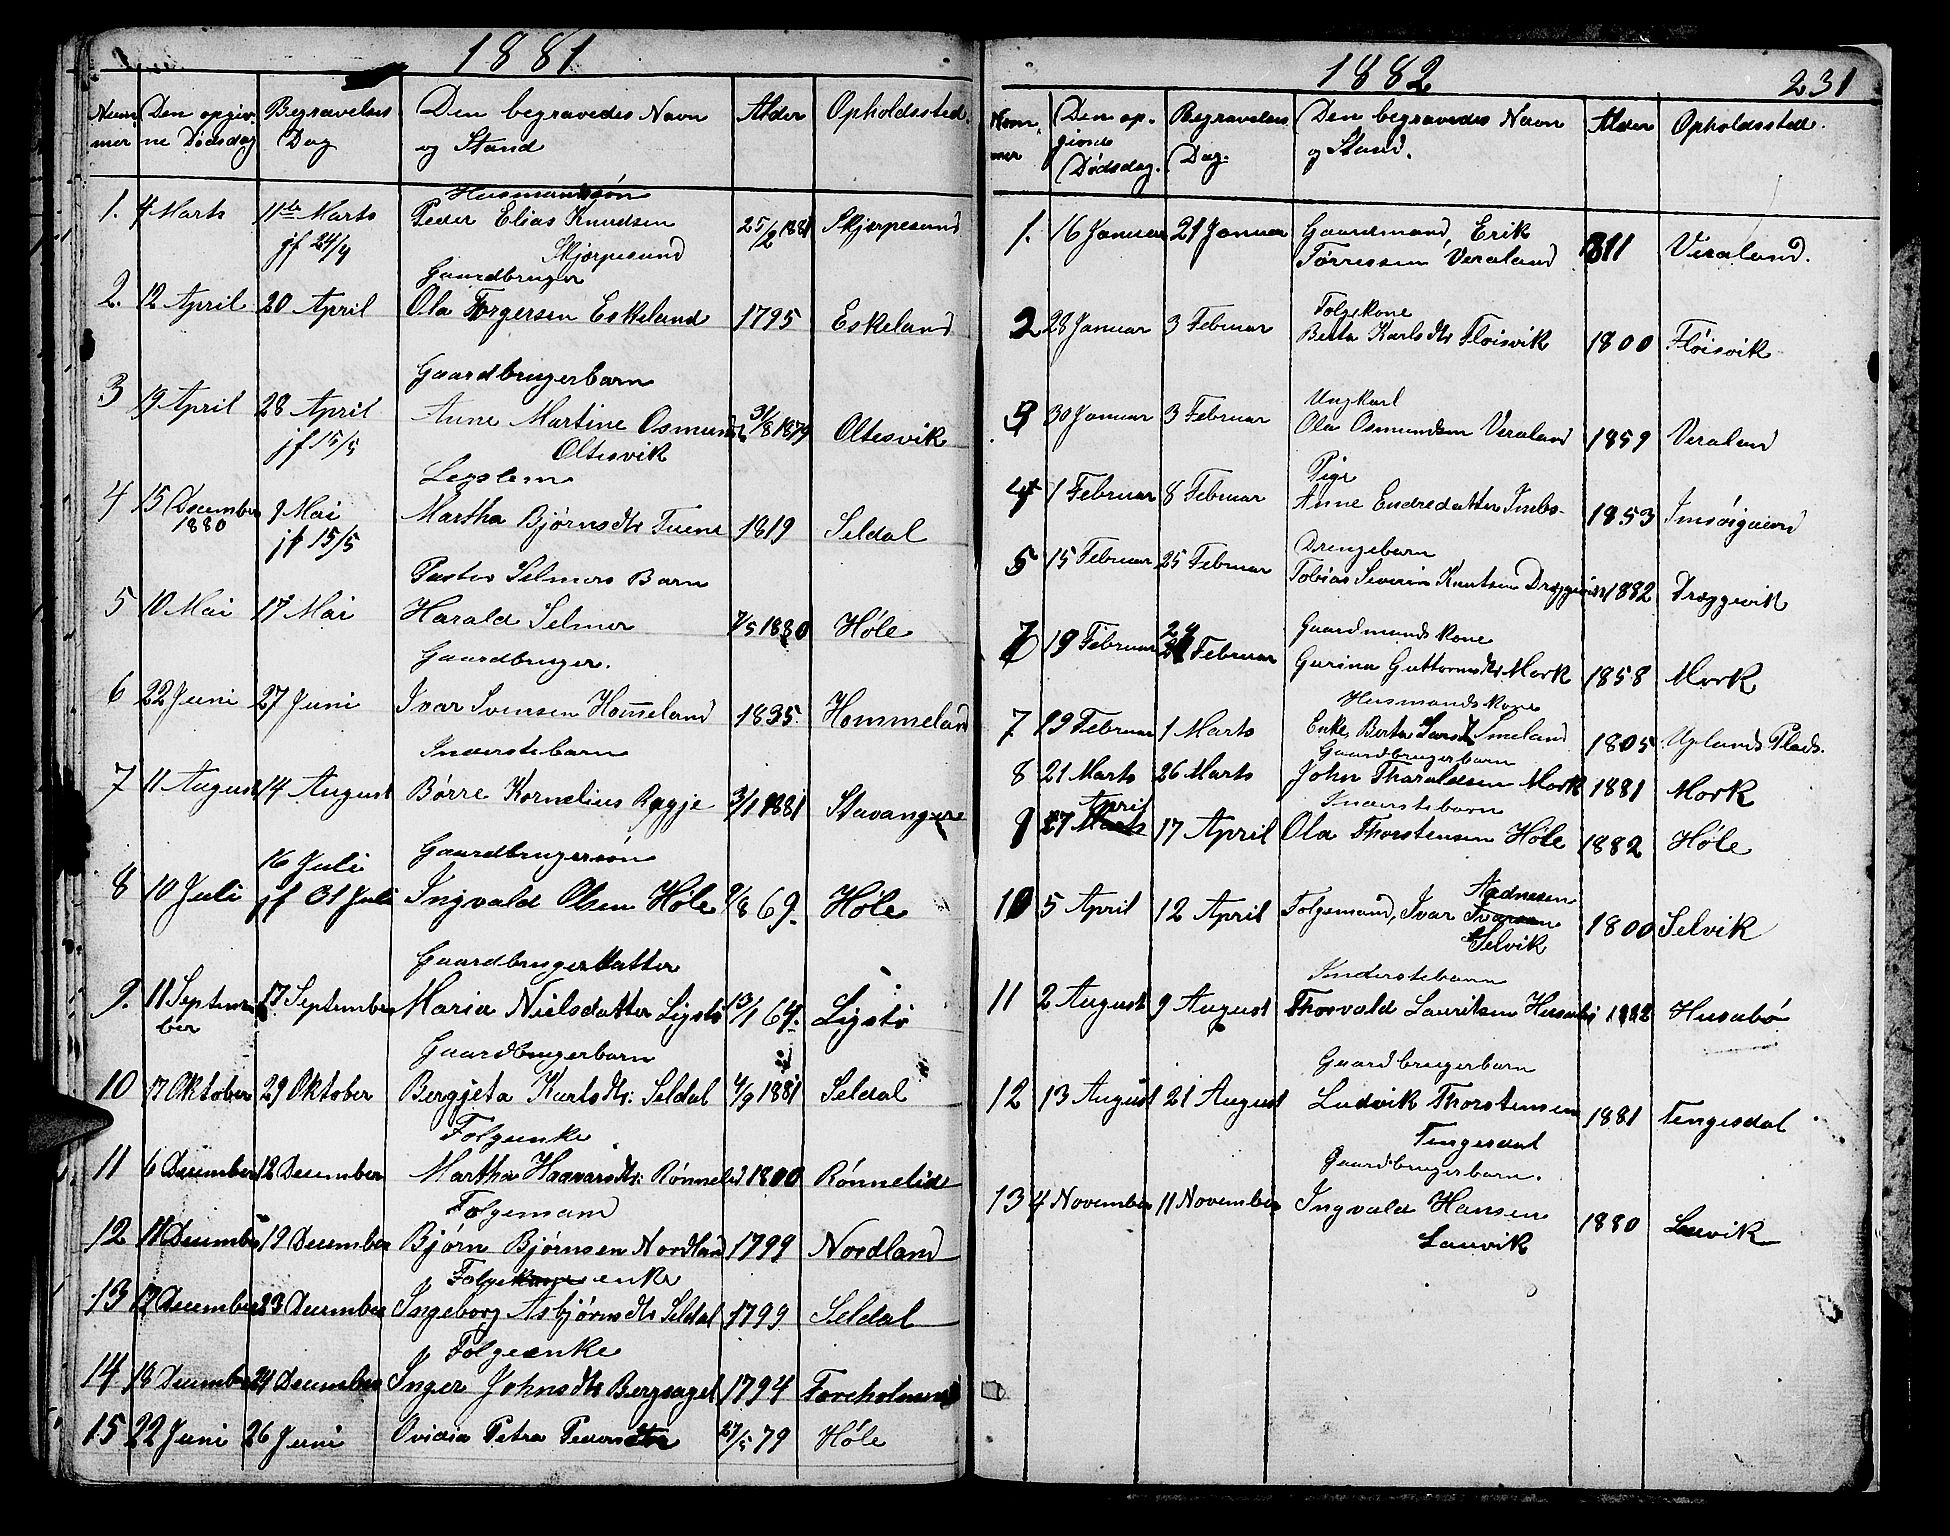 1881
Num- Den opgiv- Begravelses Den begravedes Navn Alder Opholdssted.
mer ne Dødsdag Dag og Stand
Husmandssøn
1. 4 Marts 11te Marts Peder Elias Knudsen 25/2 1881 Skjørpesund
jf 24/4 Skjørpesund
Gaardbruger
2. 12 April 20 April Ola Torgersen Eskeland 1795 Eskeland
Gaardbrugerbarn
3 19 April 28 April Anne Martine Osmunds 31/8 1879 Oltesvik
jf 15/5 Oltesvik
Legslem
4 15 December 9 Mai Martha Bjørnsdtr Tuene 1819 Seldal
1880 jf 15/5
Pastor Selmers Barn
5 10 Mai 17 Mai Harald Selmer 7/5 1880 Høle
Gaardbruger.
6 22 Juni 27 Juni Ivar Svensen Hom̅eland 1835 Hommeland
Inderstebarn
7 11 August 14 August Børre Kornelius Røgje 3/1 1881 Stavanger
16 Juli Gaardbrugersøn
8 10 Juli jf 31 Juli Ingvald Olsen Høle 9/8 69. Høle
Gaardbrugerdatter
9. 11 Septem- 17 September Maria Nielsdatter Ligstø 13/1 64. Ligstø
ber
Gaardbrugerbarn
10 17 Oktober 29 Oktober Bergjeta Karlsdtr: Seldal 4/9 1881 Seldal
Folgeenke
11 6 December 12 December Martha Haavarsdtr: Rønnelid 1800 Rønnelid
Folgemand
12 11 December 19 December Bjørn Bjørnsen Nordland 1799 Nordland
Folgekone enke
13 17 December 23 December Ingeborg Asbjørnsdtr Seldal 1799 Seldal
Folgeenke
14 18 December 24 December Inger Johnsdtr Bergsagel 1794
15 22 Juni 26 Juni Ovidia Petra Pedersdtr 27/5 79 Høle
1882 231
Num- Den op- Begravelses Den begravedes Navn Alder Opholdssted.
mer givne Dag. og Stand.
Dødsdag.
1. 16 Januar 21 Januar Gaardmand, Erik 1811 Veraland.
Tørressen Veraland
Folgekone
2 28 Januar 3 Februar Berta Karlsdtr Fløisvik 1800 Fløisvik
Ungkarl
3 30 Januar 3 Februar Ola Osmundsen Veraland 1859 Veraland
Pige
4 1 Februar 8 Februar Anne Endredatter Imbs- 1853 Imsøigeiend
Drengebarn
5 15 Februar 25 Februar Tobias Severin Knutsen Dræggevik 1882 Dræggevik
24 Gaardmandskone
6 19 Februar 21 Februar Gurina Guttormsdtr Mørk 1858 Mørk
Husmandskone
7 19 Februar 1 Marts Enke, Berta Larsdtr Imeland 1805 Uplands Plads.
Gaardbrugerbarn
8 21 Marts 26 Marts John Tharaldsen Mørk 1881 Mørk
April Inderstebarn
9 27 Marts 17 April Ola Thorstensen Høle 1882 Høle
Aadnesen
10 5 April 12 April Folgemand, Ivar Ivarsen 1800 Selvik
Selvik
Inderstebarn
11 2 August 9 August Thorvald Lauritsen Husabø 1882 Husabø
Gaardbrugerbarn
12 13 August 21 August Ludvik Thorstensen 1881 Tengesdal
Tengesdal
Gaardbrugerbarn.
13 4 November 11 November Ingvald Hansen 1880 Lauvik
Lauvik